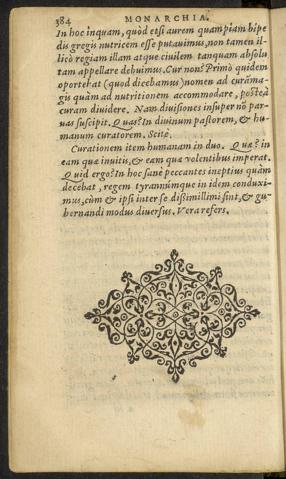 384 MONARCHIA.
In hoc inquam, quòd etsi aurem quampiam bipe
dis gregis nutricem esse putauimus, non tamen il-
licò regiam illam atque ciuilem tanquam absolu
tam appellare debuimus. Cur non? Primò quidem
oportebat (quod dicebamus) nomen ad curāma-
gis quàm ad nutritionem accommodare, posteà
curam diuidere. Nam diuisiones insuper nō par-
uas suscipit. Quas? In diuinum pastorem, & hu-
manum curatorem. Scitè.
Curationem item humanam in duo. Quæ? in
eam quæ inuitis, & eam quæ volentibus imperat.
Quid ergo? In hoc sanè peccantes ineptius quàm
decebat, regem tyrannúmque in idem conduxi-
mus, cùm & ipsi inter se dißimillimi sint, & gu-
bernandi modus diuersus. Vera refers.